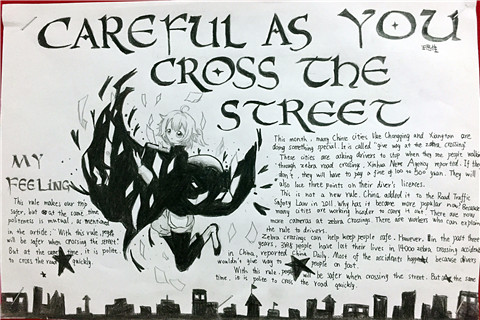 CAREFUL AS YOU
CROSS THE
STREET
This month, many China cities like Chongqing and Xiangtan are
doing something special. It is called "give way at the zebra crossing"
These cities are asking drivers to stop when they see people walking
through zebra road crossings, Xinhua News Agency reported. If they
don't, they will have to pay a fine of 100 to 200 yuan. They will
also lose three points on their driver's licences.
This is not a new rule. China added it to the Road Traffic
Safety Law in 2011. Why has it become more popular now? Because
many cities are working harder to carry it out. There are now
more cameras at zebra crossings. There are workers who can explain
the rule to drivers.
Zebra crossings can help keep people safe. However, in the past three
years, 3898 people have lost their lives in 14000 zebra crossing accidents
in China, reported China Daily. Most of the accidents happened because drivers
wouldn't give way to people on foot.
With this rule, people will be safer when crossing the street. But at the same
time, it is polite to cross the road quickly.
MY
FEELING
This rule makes our trip
safer, but at the same time,
politeness is mutual, as mentioned
in the article: "With this rule, people
will be safer when crossing the street."
But at the same time, it is polite
to cross the road quickly.